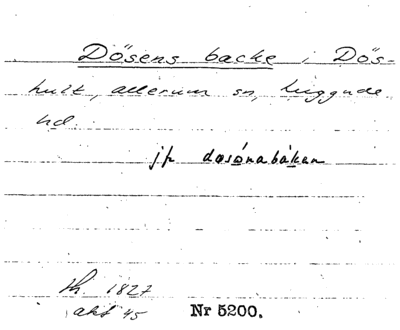 Dösens backe i Dös-
hult, allerum sn, luggude
hd.
jfr dosónabákan
th. 1827
akt 45 Nr 5200.